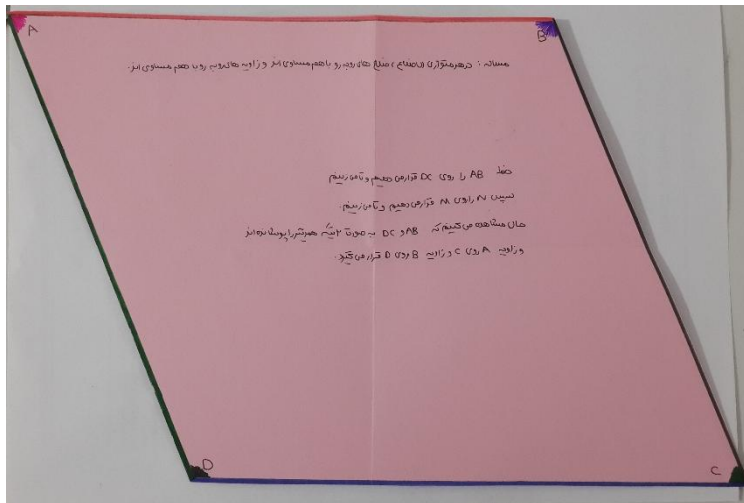 A
B
مساله : در هر متوازی الاضلاع ، ضلع های روبه رو با هم مساوی اند و زاویه های روبه رو با هم مساوی اند .
خط AB را روی DC قرار می دهیم و تا می زنیم
سپس N را روی M قرار می دهیم و تا می زنیم .
حال مشاهده می کنیم که AB و DC به صورت همدیگر را پوشانده اند
و زاویه A روی C و زاویه B روی D قرار می گیرد .
D
C